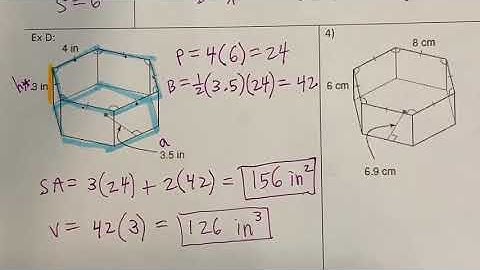 S = 6
Ex D:
4 in
P = 4(6) = 24
h* 3 in
B = ½(3.5)(24) = 42
a
3.5 in
SA = 3(24) + 2(42) = 156 in²
V = 42(3) = 126 in³
4)
8 cm
6 cm
6.9 cm